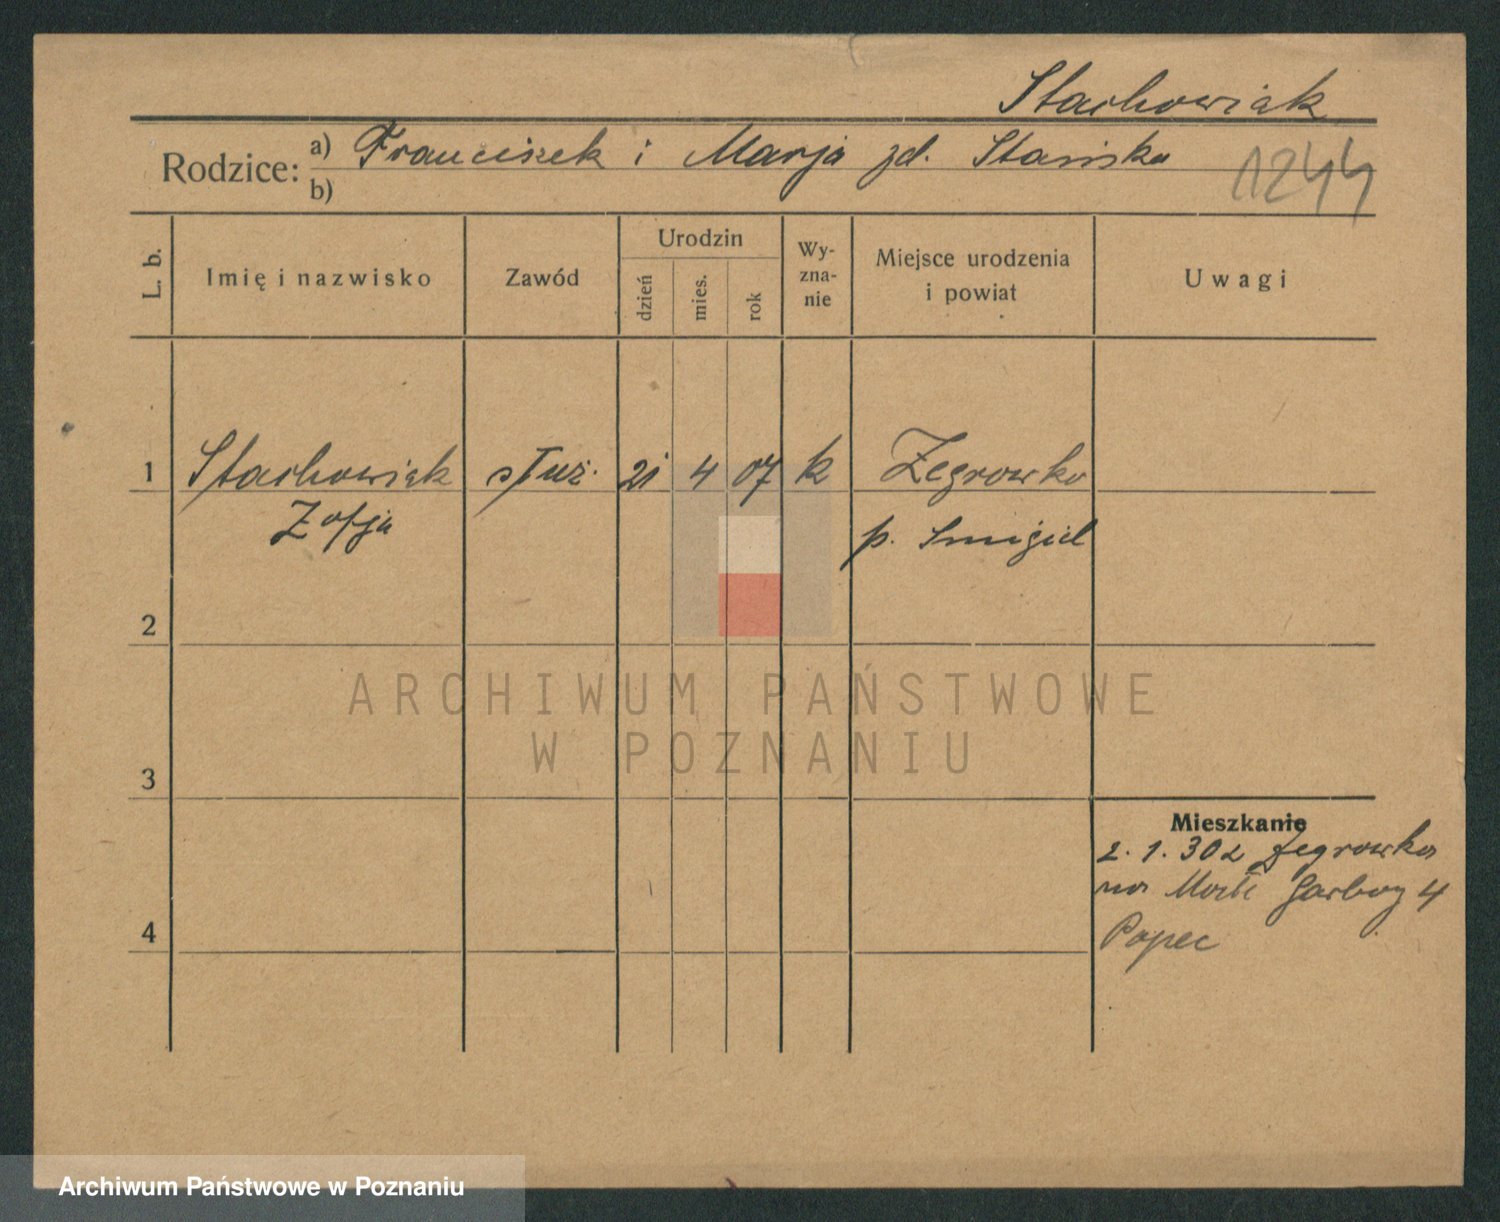 Stachowiak
Rodzice: a) Franciszek i Marja zd. Stańska
b)
1244
L. b.
Imię i nazwisko
Zawód
Urodzin
dzień
mies.
rok
Wy-
zna-
nie
Miejsce urodzenia
i powiat
Uwagi
1 Stachowiak służ. 21 4 07 k Żegrowko
Zofja p. Śmigiel
2
3
4
Mieszkanie
2. 1. 30 z Żegrowka
na Garbary 4
ARCHIWUM PAŃSTWOWE
W POZNANIU
Archiwum Państwowe w Poznaniu